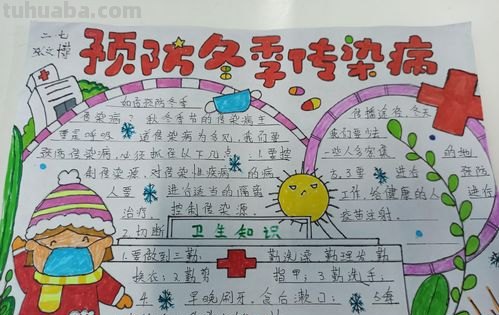 tuhuaba.com
二七
预防冬季传染病
如何预防冬季
传染病？秋冬季节的传染病主
要是呼吸道传染病为多见，我们要
预防传染病，必须抓住以下几点：1.要控
制传染源，对传染性疾病的病
人要进行适当的隔离
治疗，控制传染源。
2.切断
传播途径，冬天
我们要少去
一些人多密集的地
方。3.要进行预防
工作，给健康的人进行
疫苗注射。
卫生知识
1.要做到三勤：勤洗澡勤理发勤
换衣；2勤剪指甲；3勤洗手；
4.早晚刷牙，食后漱口；5.